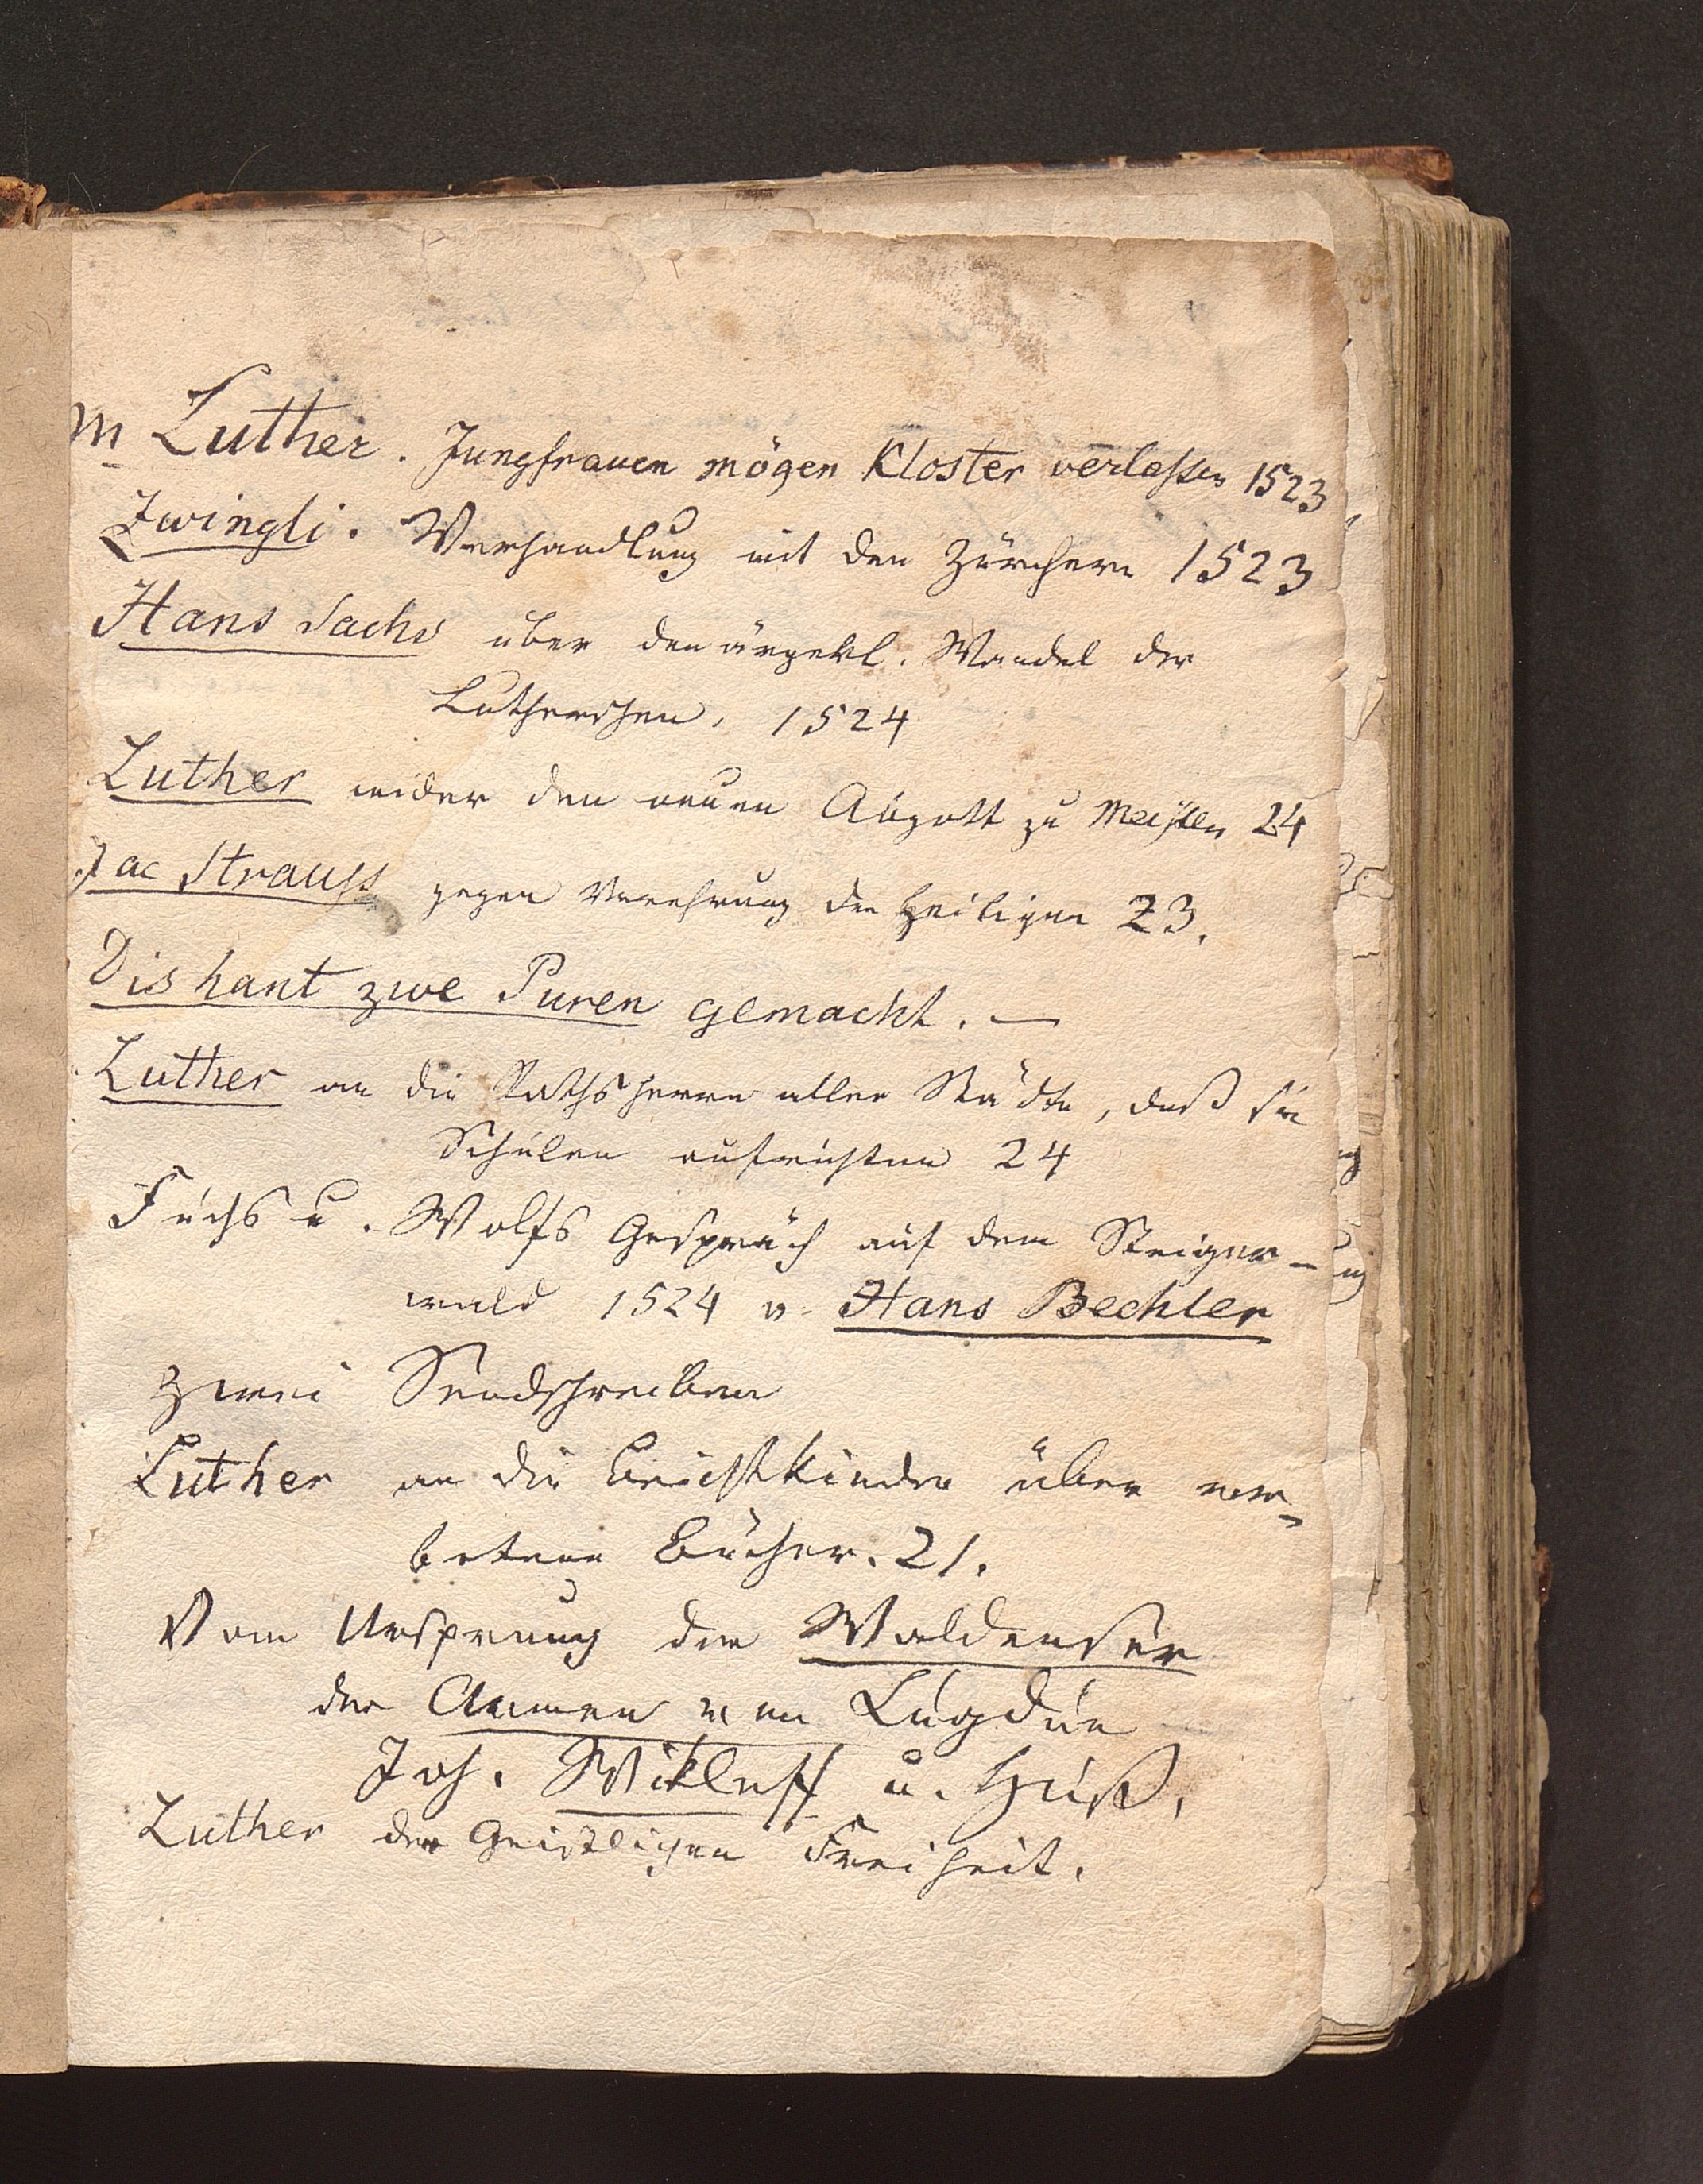 M Luther. Jungfrauen mögen Kloster verlaßen 1523
Zwingli. Verhandlung mit den Zürchern 1523
Hans Sachs über den ärgerl. Wandel der
Lutherschen. 1524
Luther wider den neuen Abgott zu Meißen 24
Jac Strauss gegen Verehrung der Heiligen 23.
Dis hant zwe Puren gemacht. —
Luther an die Rathsherrn aller Städte, daß sie
Schulen aufrichten 24
Fuchs u. Wolfs Gespräch auf dem Steiger-
wald 1524 v. Hans Bechler
zwei Sendschreiben
Luther an die Beichtkinder über ver-
botene Bücher. 21.
Vom Ursprung der Waldenser
der Armen von Lugdun
Joh. Wikleff u. Huß.
Luther der Geistligen Freiheit.